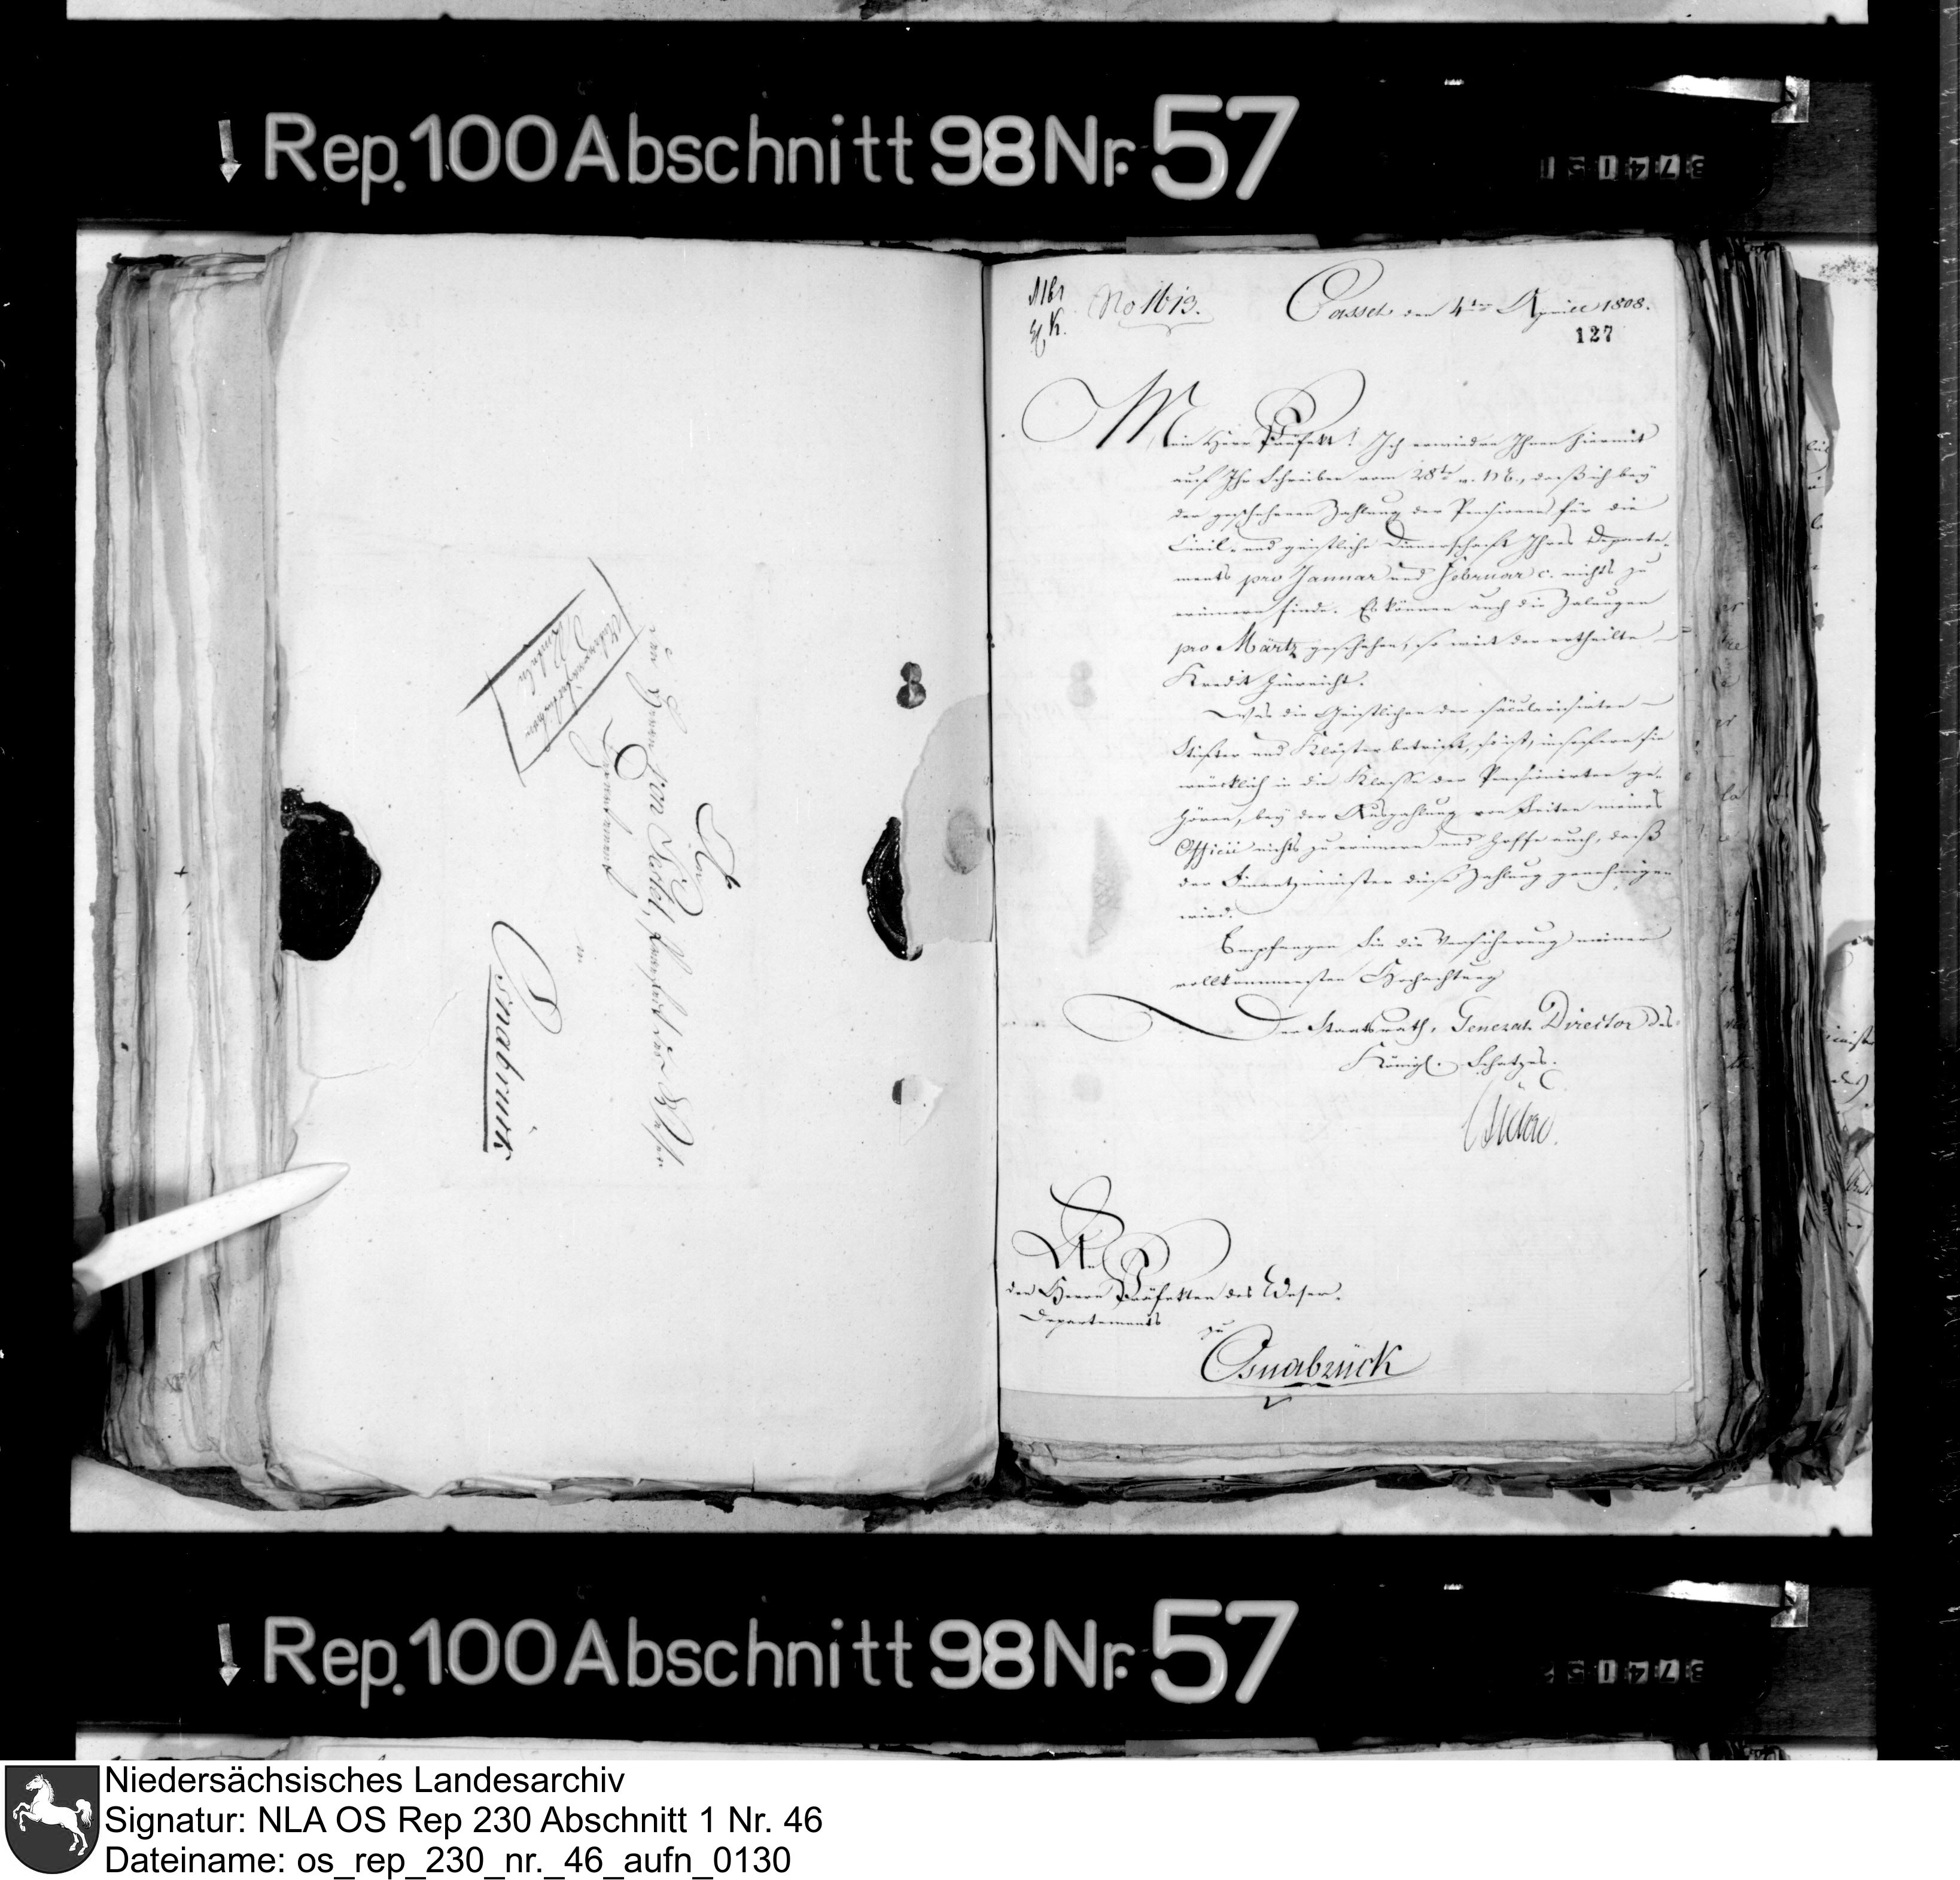 Rep. 100 Abschnitt 98 Nr. 57
An
den Herrn von Pestel, Präfect des Weser
Departement
in
Osnabrück
No 1613.
Cassel den 4ten Aprill 1808.
127
Mein Herr Präfekt! Ich erwiedre Ihnen hiermit
auf Ihr Schreiben vom 28ten v. M., daß ich bey
der geschehenen Zahlung der Pensionen für die
Civil- und geistliche Dienerschaft Ihres Departe-
ments pro Januar und Februar c. nichts zu
erinnern finde. Es können auch die Zalungen
pro Märtz geschehen, so weit der ertheilte
Kredit hinreicht.
Was die Geistlichen der säcularisirten
Stifter und Klöster betrifft, so ist, insofern sie
würcklich in die Klasse der Pensionirten ge-
hören, bey der Auszahlung von Seiten meines
Officii nichts zu erinnern und hoffe auch, daß
der Finantzminister diese Zahlung genehmigen
wird.
Empfangen Sie die Versicherung meiner
vollkommensten Hochachtung
Der Staatsrath, General Director des
Königl. Schatzes.
An
den Herrn Präfekten des Weser-
Departements
zu
Osnabrück
Rep. 100 Abschnitt 98 Nr. 57
Niedersächsisches Landesarchiv
Signatur: NLA OS Rep 230 Abschnitt 1 Nr. 46
Dateiname: os_rep_230_nr._46_aufn_0130